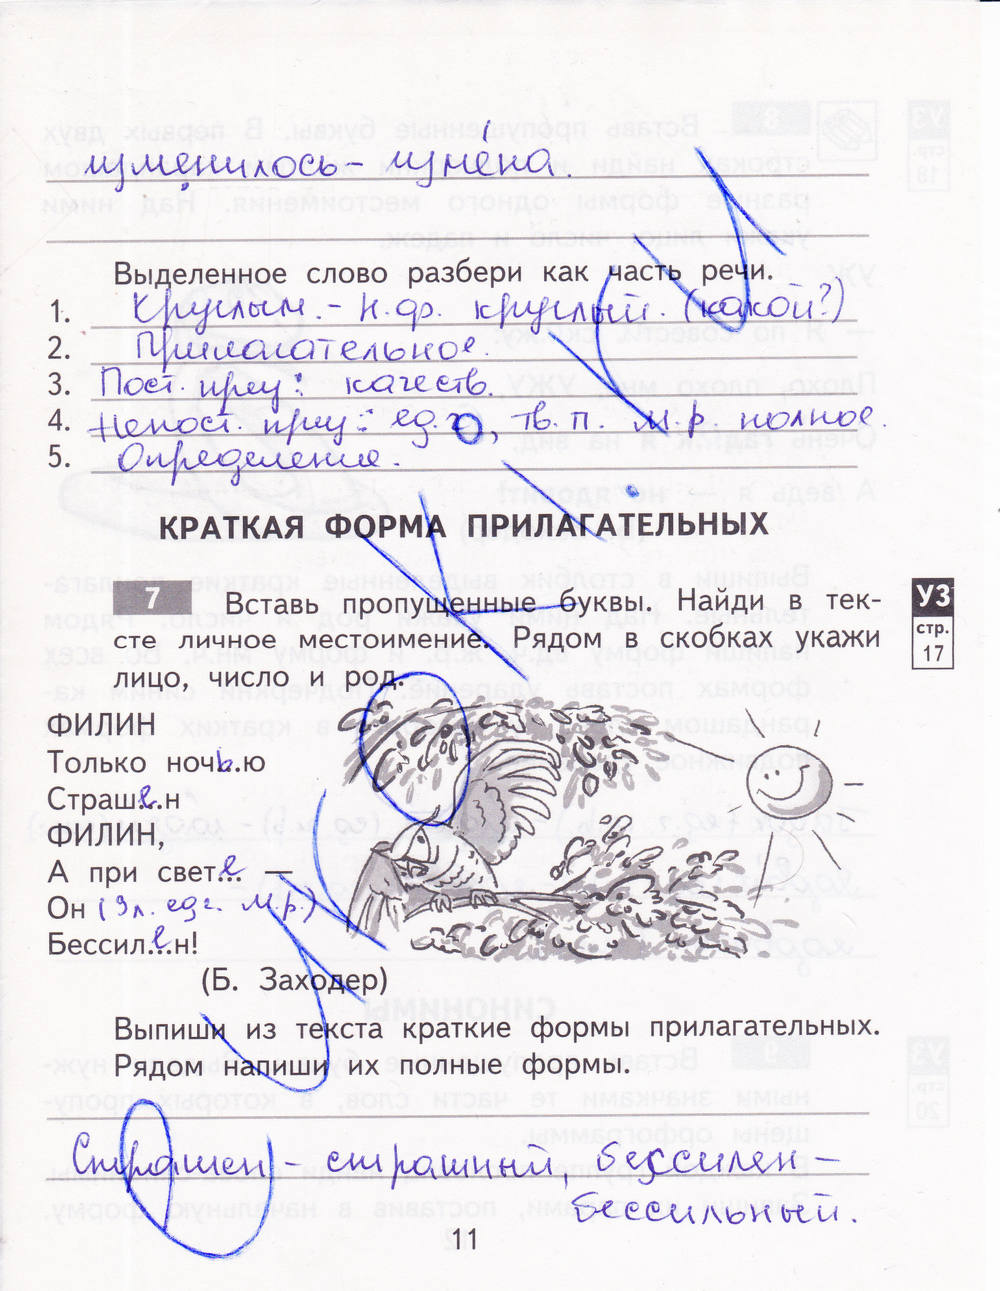 изменилось – измена.
Выделенное слово разбери как часть речи.
1. Круглым. – н.ф. круглый. (какой?)
2. Прилагательное.
3. Пост. приз: качеств.
4. Непост. приз: ед.ч, тв. п. м.р полное.
5. Определение.
КРАТКАЯ ФОРМА ПРИЛАГАТЕЛЬНЫХ
7 Вставь пропущенные буквы. Найди в тек-
сте личное местоимение. Рядом в скобках укажи
лицо, число и род.
УЗ
стр.
17
ФИЛИН
Только ночь.ю
Страше.н
ФИЛИН,
А при свете.. —
Он (3л. едч. м.р.)
Бессил.е.н!
(Б. Заходер)
Выпиши из текста краткие формы прилагательных.
Рядом напиши их полные формы.
Страшен – страшный, бессилен –
бессильный.
11